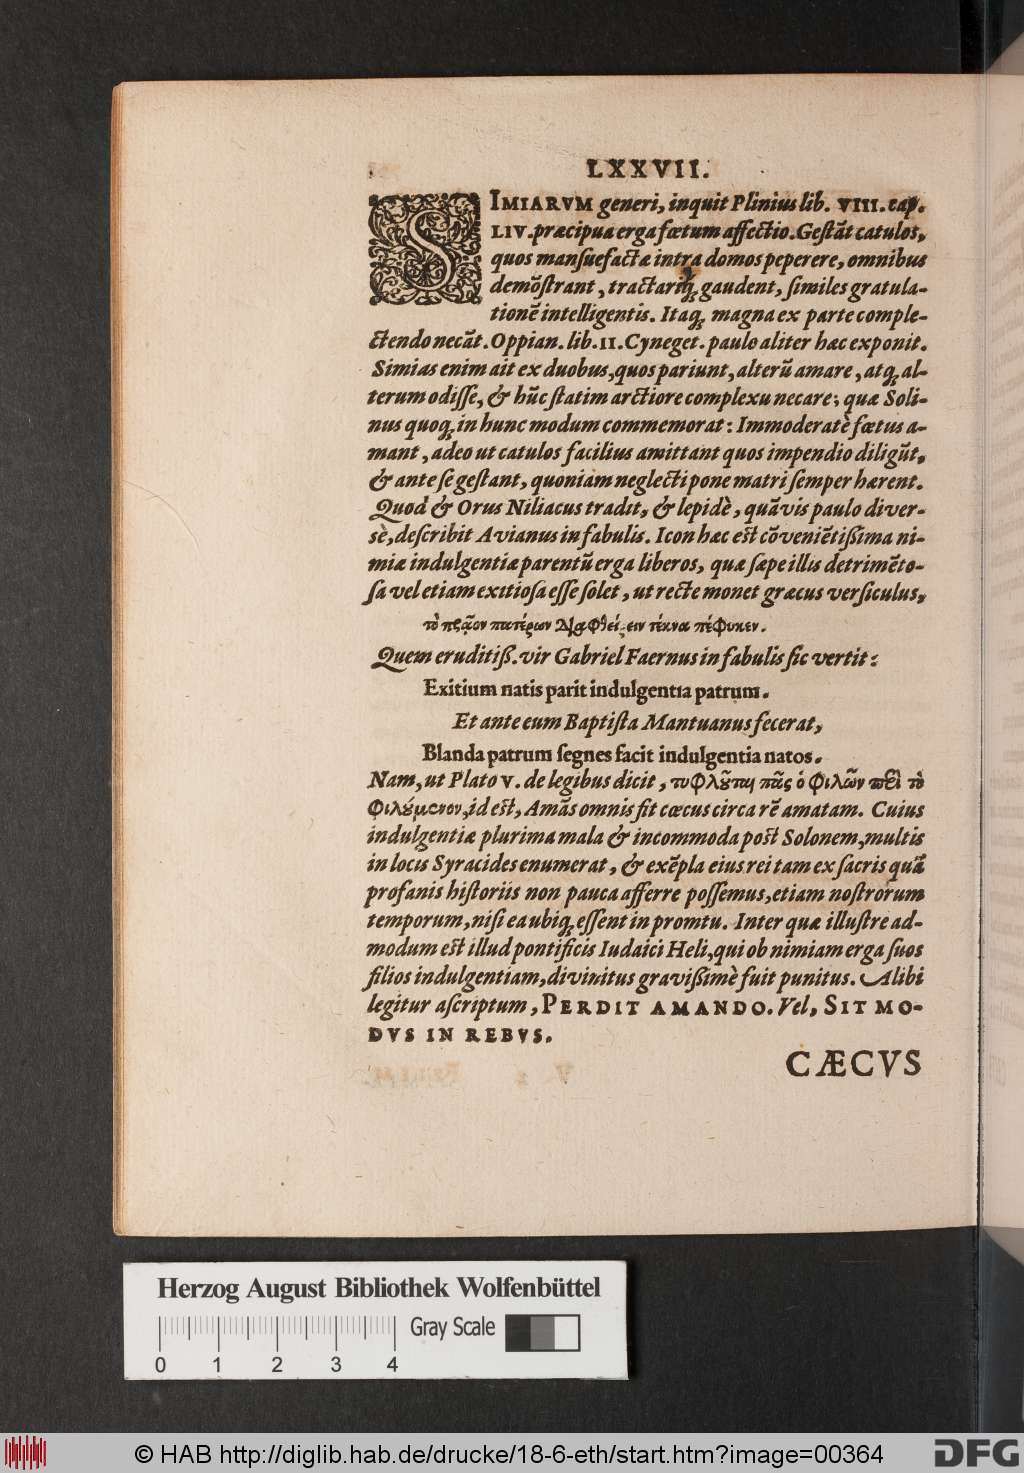 LXXVII.
SIMIARVM generi, inquit Plinius lib. VIII. cap.
LIV. præcipua erga fœtum affectio. Gestāt catulos,
quos mansuefactæ intra domos peperere, omnibus
demōstrant, tractariq́; gaudent, similes gratula-
tionē intelligentis. Itaq; magna ex parte comple-
ctendo necāt. Oppian. lib. II. Cyneget. paulo aliter hæc exponit.
Simias enim ait ex duobus, quos pariunt, alterū amare, atq; al-
terum odisse, & hūc statim arctiore complexu necare: quæ Soli-
nus quoq; in hunc modum commemorat: Immoderatè fœtus a-
mant, adeo ut catulos facilius amittant quos impendio diligūt,
& ante se gestant, quoniam neglecti pone matri semper hærent.
Quod & Orus Niliacus tradit, & lepidè, quāvis paulo diver-
sè, describit Avianus in fabulis. Icon hæc est cōveniētißima ni-
miæ indulgentiæ parentū erga liberos, quæ sæpe illis detrimēto-
sa vel etiam exitiosa esse solet, ut recte monet græcus versiculus,
τὸ πρᾶον πατέρων Διαφθείρειν τέκνα πέφυκεν.
Quem eruditiß. vir Gabriel Faernus in fabulis sic vertit:
Exitium natis parit indulgentia patrum.
Et ante eum Baptista Mantuanus fecerat,
Blanda patrum segnes facit indulgentia natos.
Nam, ut Plato V. de legibus dicit, τυφλȣ̃ται πᾶς ὁ φιλῶν περὶ τὸ
φιλȣ́μενον, id est, Amās omnis fit cæcus circa rē amatam. Cuius
indulgentiæ plurima mala & incommoda post Solonem, multis
in locis Syracides enumerat, & exēpla eius rei tam ex sacris quā
profanis historiis non pauca afferre possemus, etiam nostrorum
temporum, nisi ea ubiq; essent in promtu. Inter quæ illustre ad-
modum est illud pontificis Iudaici Heli, qui ob nimiam erga suos
filios indulgentiam, divinitus gravißimè fuit punitus. Alibi
legitur ascriptum, PERDIT AMANDO. Vel, SIT MO-
DVS IN REBVS.
CÆCVS
Herzog August Bibliothek Wolfenbüttel
Gray Scale
0 1 2 3 4
© HAB http://diglib.hab.de/drucke/18-6-eth/start.htm?image=00364
DFG